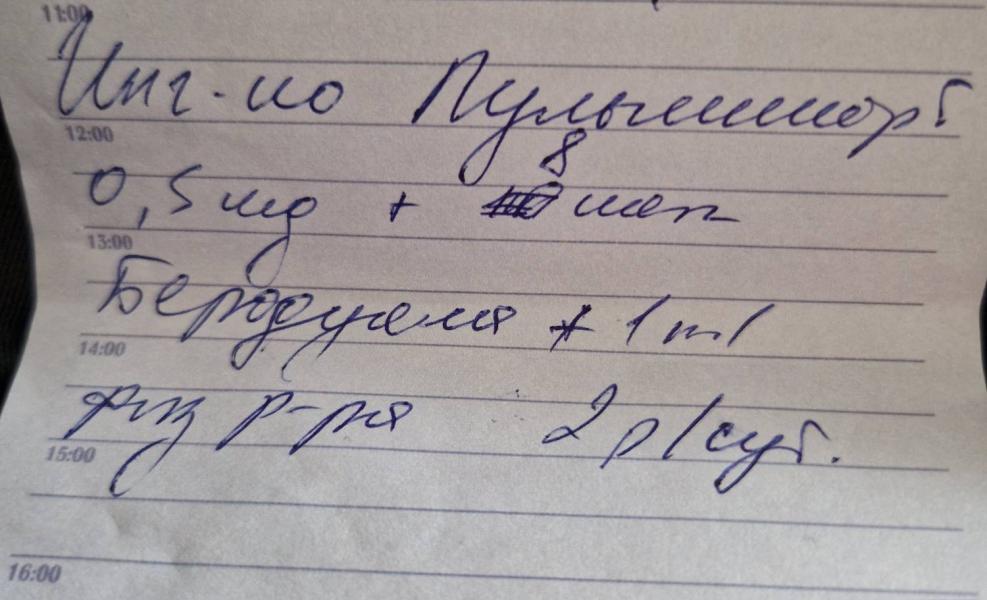 11:00
Инг-но Пульмикорт
12:00
8
0,5 мд + кап
13:00
Беродуала + 1 ml
14:00
физ р-ра 2 р/сут.
15:00
16:00